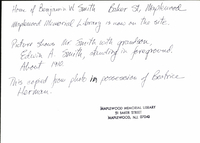 Home of Benjamin W. Smith Baker St, Maplewood
Maplewood Memorial Library is now on the site.
Picture shows Mr Smith with grandson,
Edwin A. Smith, standing in foreground.
About
This copied from plate in possession of Beatrice
Herman.
MAPLEWOOD MEMORIAL LIBRARY
51 BAKER STREET
MAPLEWOOD, NJ 07040